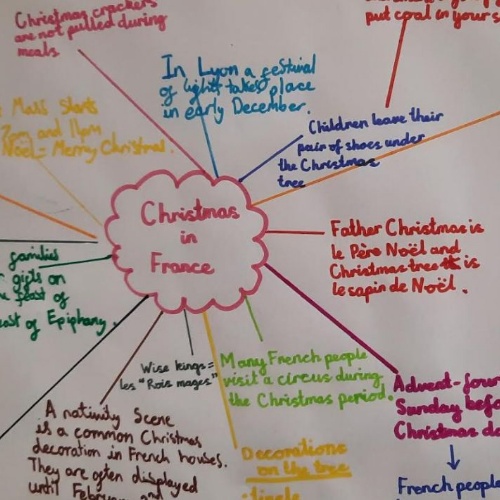 Christmas crackers
are not pulled during
meals
put coal in your s
In Lyon a festival
of lights takes place
in early December.
Children leave their
pair of shoes under
the Christmas
tree
Mass starts
7pm and 11pm
Noël = Merry Christmas.
Christmas
in
France
Father Christmas is
le Père Noël and
Christmas tree is
le sapin de Noël.
families
gifts on
feast of
Epiphany.
Wise kings =
les "Rois mages"
Many French people
visit a circus during
the Christmas period.
Advent-four
Sunday befo
Christmas da
French people
A nativity Scene
is a common Christmas
decoration in French houses.
They are often displayed
until February and
Decorations
on the tree